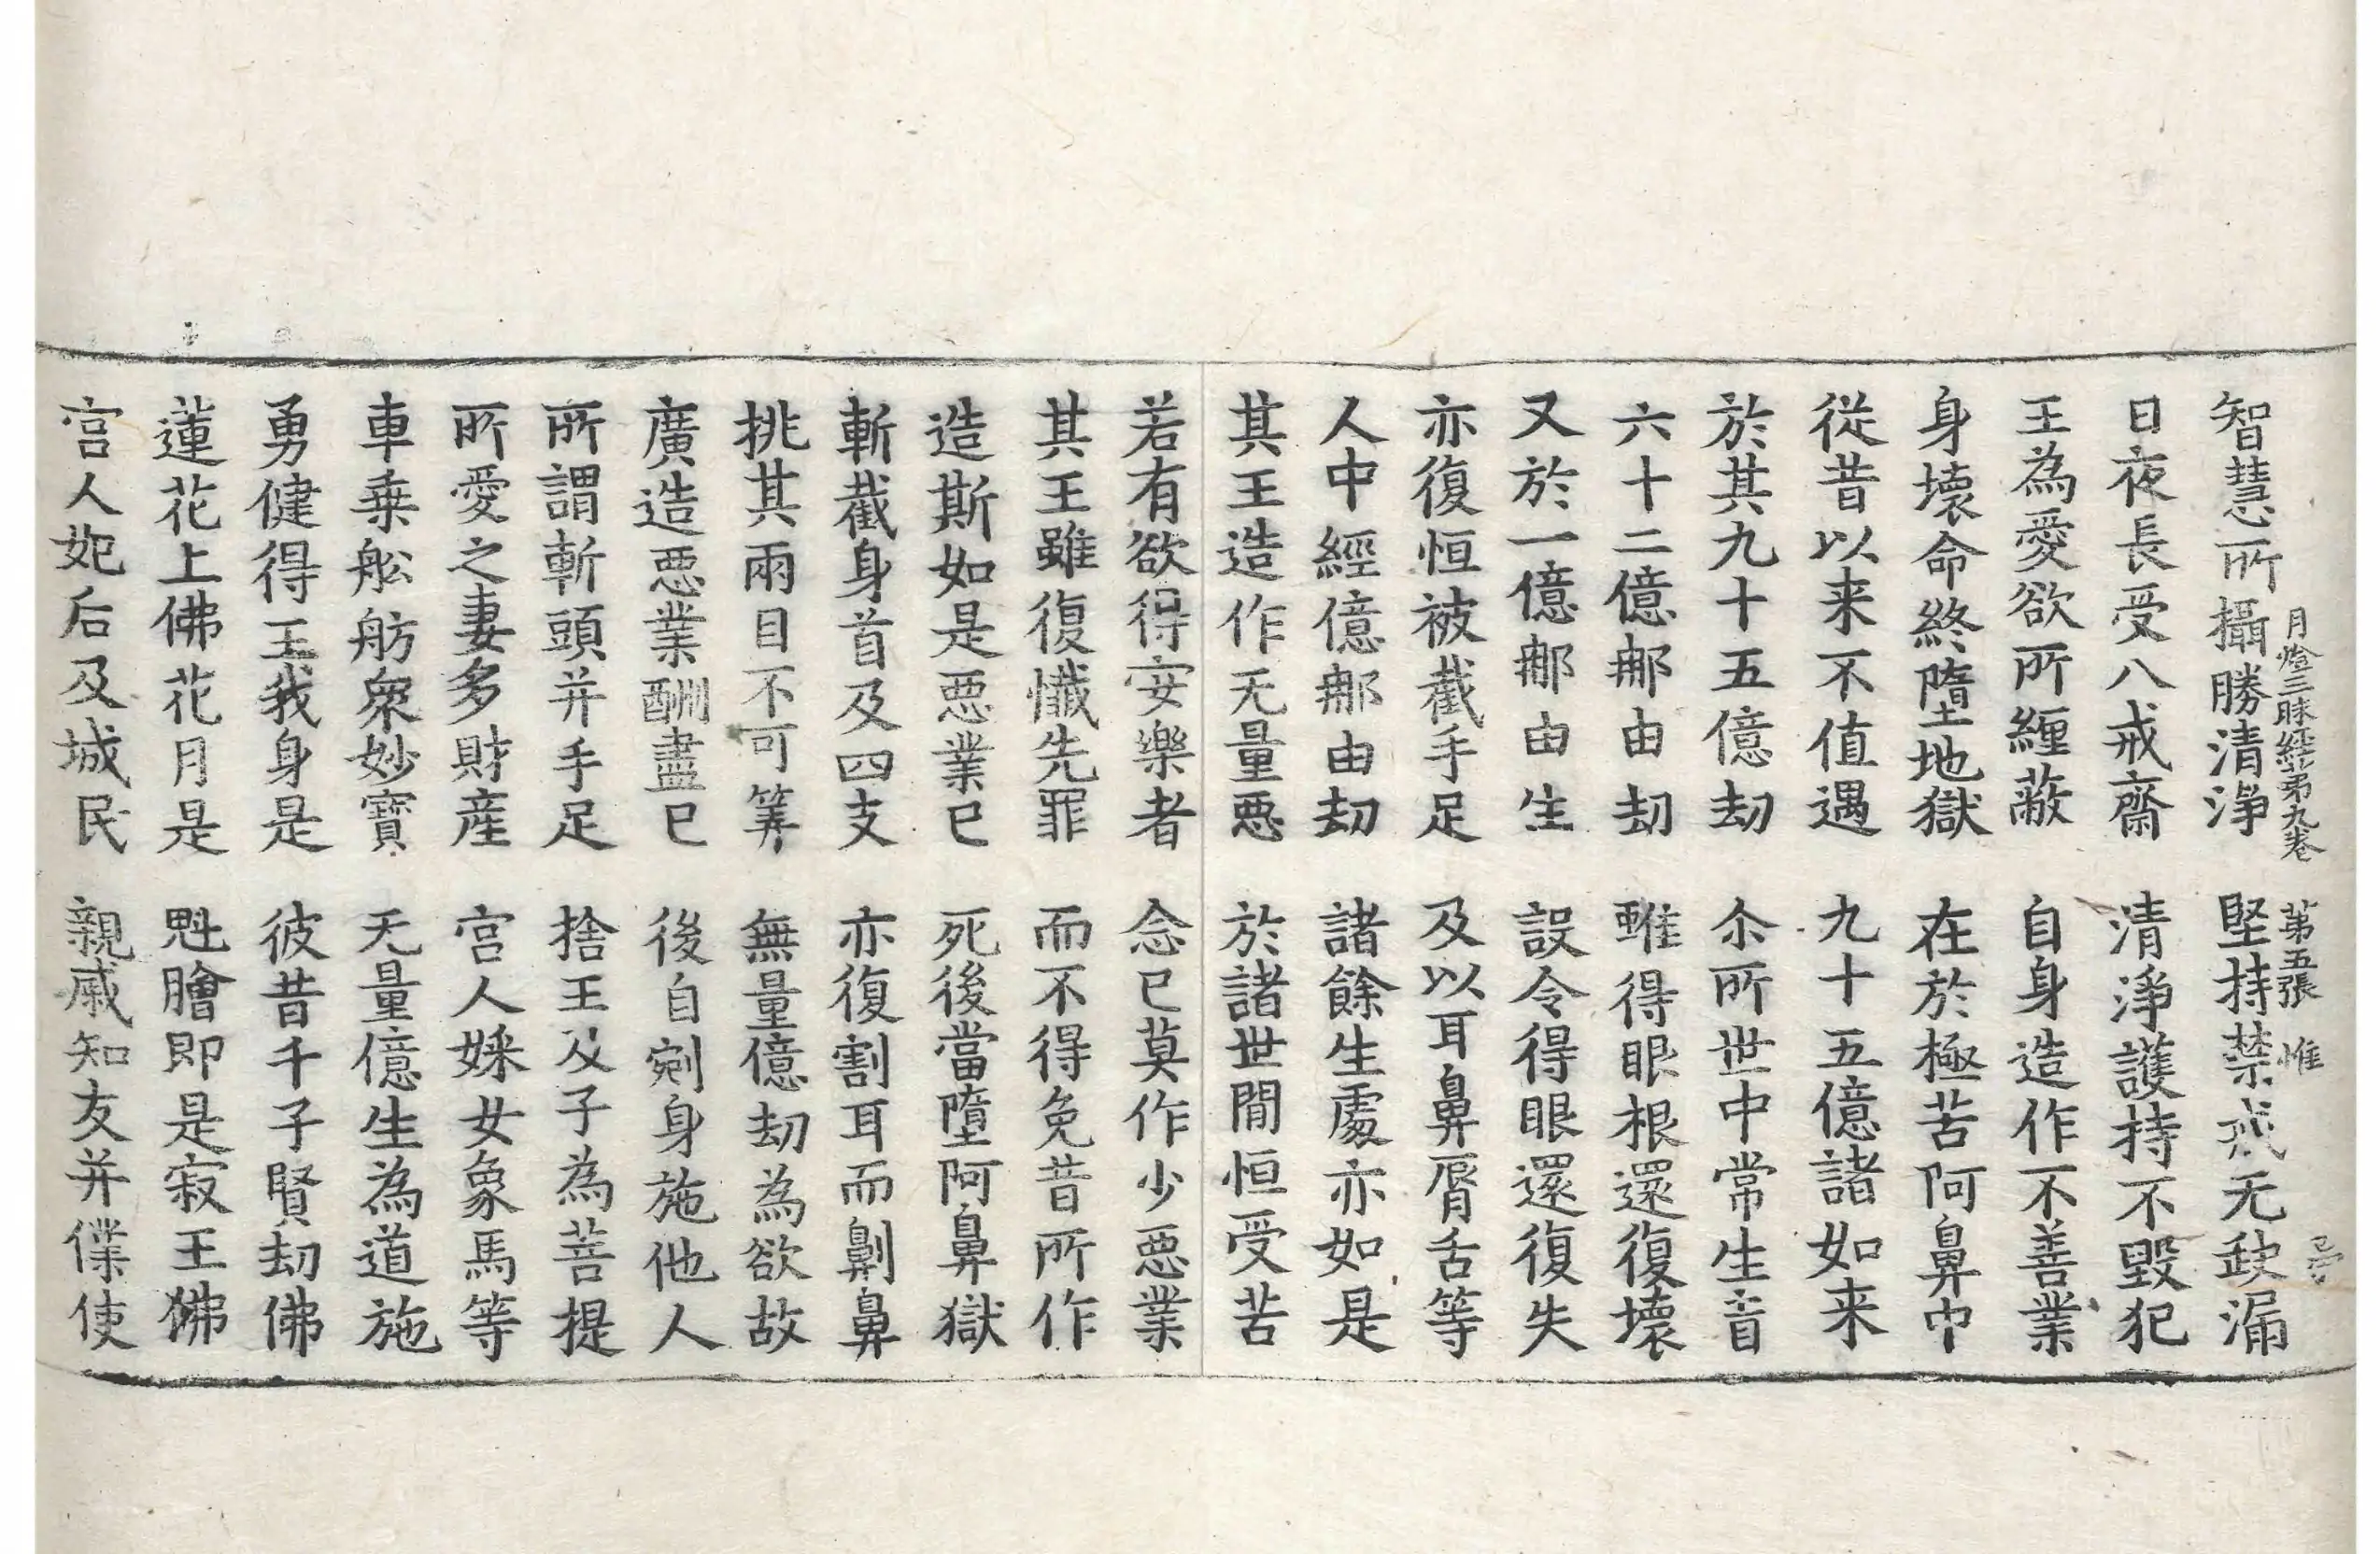 月燈三昧經第九卷　第五張　惟
智慧所攝勝清淨　堅持禁戒无缺漏
日夜長受八戒齋　清淨護持不毀犯
王為愛欲所纏蔽　自身造作不善業
身壞命終墮地獄　在於極苦阿鼻中
從昔以来不值遇　九十五億諸如来
於其九十五億劫　尒所世中常生盲
六十二億那由劫　雖得眼根還復壞
又於一億那由生　設令得眼還復失
亦復恒被截手足　及以耳鼻脣舌等
人中經億那由劫　諸餘生處亦如是
其王造作无量惡　於諸世間恒受苦
若有欲得安樂者　念已莫作少惡業
其王雖復懺先罪　而不得免昔所作
造斯如是惡業已　死後當墮阿鼻獄
斬截身首及四支　亦復割耳而劓鼻
挑其兩目不可筭　無量億劫為欲故
廣造惡業酬盡已　後自剜身施他人
所謂斬頭并手足　捨王及子為菩提
所愛之妻多財產　宮人婇女象馬等
車乗舩舫衆妙寶　无量億生為道施
勇健得王我身是　彼昔千子賢劫佛
蓮花上佛花月是　魁膾即是寂王佛
宮人妃后及城民　親戚知友并僕使